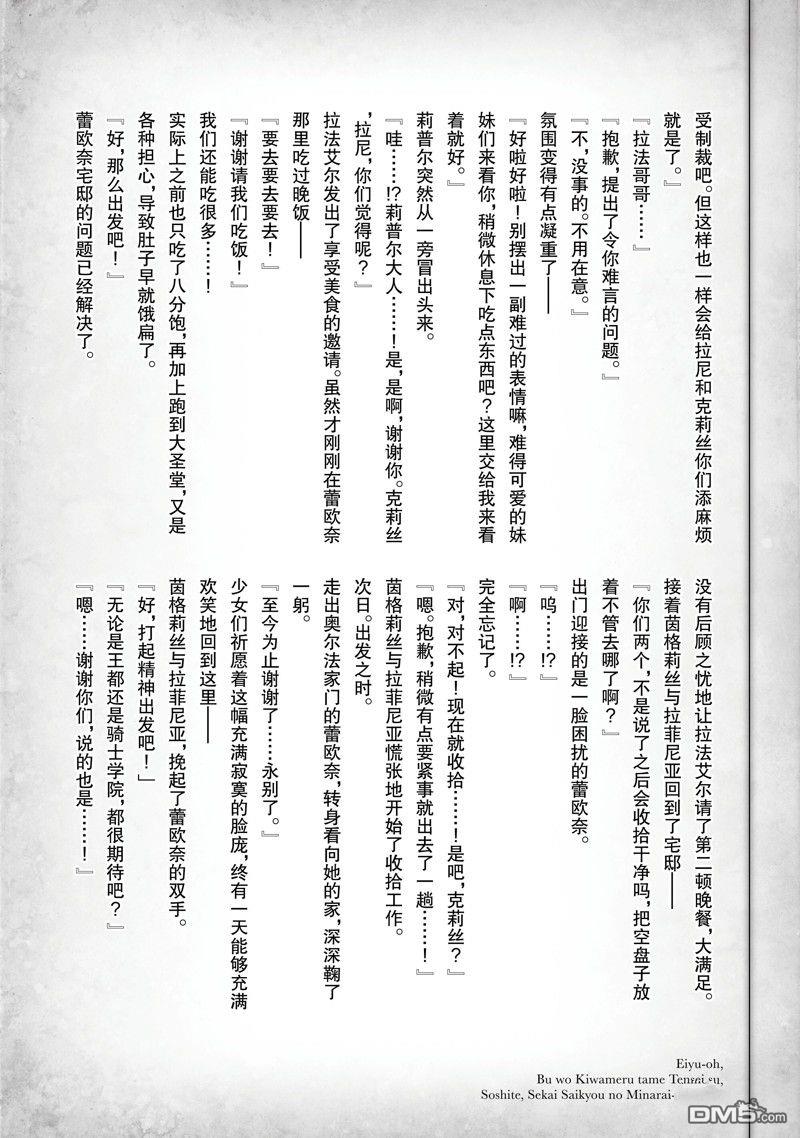 受制裁吧。但这样也一样会给拉尼和克莉丝你们添麻烦
就是了。』
『拉法哥哥……』
『抱歉，提出了令你难言的问题。』
『不，没事的。不用在意。』
氛围变得有点凝重了——
『好啦好啦！别摆出一副难过的表情嘛，难得可爱的妹
妹们来看你，稍微休息下吃点东西吧？这里交给我来看
着就好。』
莉普尔突然从一旁冒出头来。
『哇……!?莉普尔大人……！是，是啊，谢谢你。克莉丝
，拉尼，你们觉得呢？』
拉法艾尔发出了享受美食的邀请。虽然才刚刚在蕾欧奈
那里吃过晚饭——
『要去要去要去！』
『谢谢请我们吃饭！』
我们还能吃很多……！
实际上之前也只吃了八分饱，再加上跑到大圣堂，又是
各种担心，导致肚子早就饿扁了。
『好，那么出发吧！』
蕾欧奈宅邸的问题已经解决了。
没有后顾之忧地让拉法艾尔请了第二顿晚餐，大满足。
接着茵格莉丝与拉菲尼亚回到了宅邸——
『你们两个，不是说了之后会收拾干净吗，把空盘子放
着不管去哪了啊？』
出门迎接的是一脸困扰的蕾欧奈。
『呜……!?』
『啊……!?』
完全忘记了。
『对，对不起！现在就收拾……！是吧，克莉丝？』
『嗯。抱歉，稍微有点要紧事就出去了一趟……！』
茵格莉丝与拉菲尼亚慌张地开始了收拾工作。
次日。出发之时。
走出奥尔法家门的蕾欧奈，转身看向她的家，深深鞠了
一躬。
『至今为止谢谢了……永别了。』
少女们祈愿着这幅充满寂寞的脸庞，终有一天能够充满
欢笑地回到这里——
茵格莉丝与拉菲尼亚，挽起了蕾欧奈的双手。
『好，打起精神出发吧！」
『无论是王都还是骑士学院，都很期待吧？』
『嗯……谢谢你们，说的也是……！』
Eiyu-oh,
Bu wo Kiwameru tame Tensei su,
Soshite, Sekai Saikyou no Minarai-
DM5.com